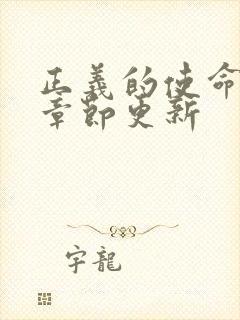 正義的使命
章節更新
宇龍